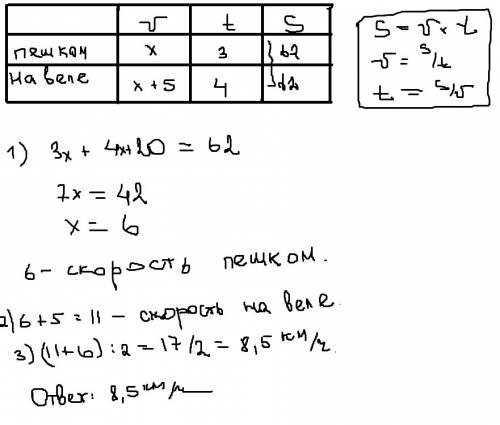 v t S
пешком x 3 } 62
на веле x + 5 4 } 62
S = v × t
v = S/t
t = S/v
1) 3x + 4x+20 = 62
7x = 42
x = 6
6 - скорость пешком.
2) 6 + 5 = 11 - скорость на веле.
3) (11+6) : 2 = 17/2 = 8,5 км/ч.
Ответ: 8,5 км/ч